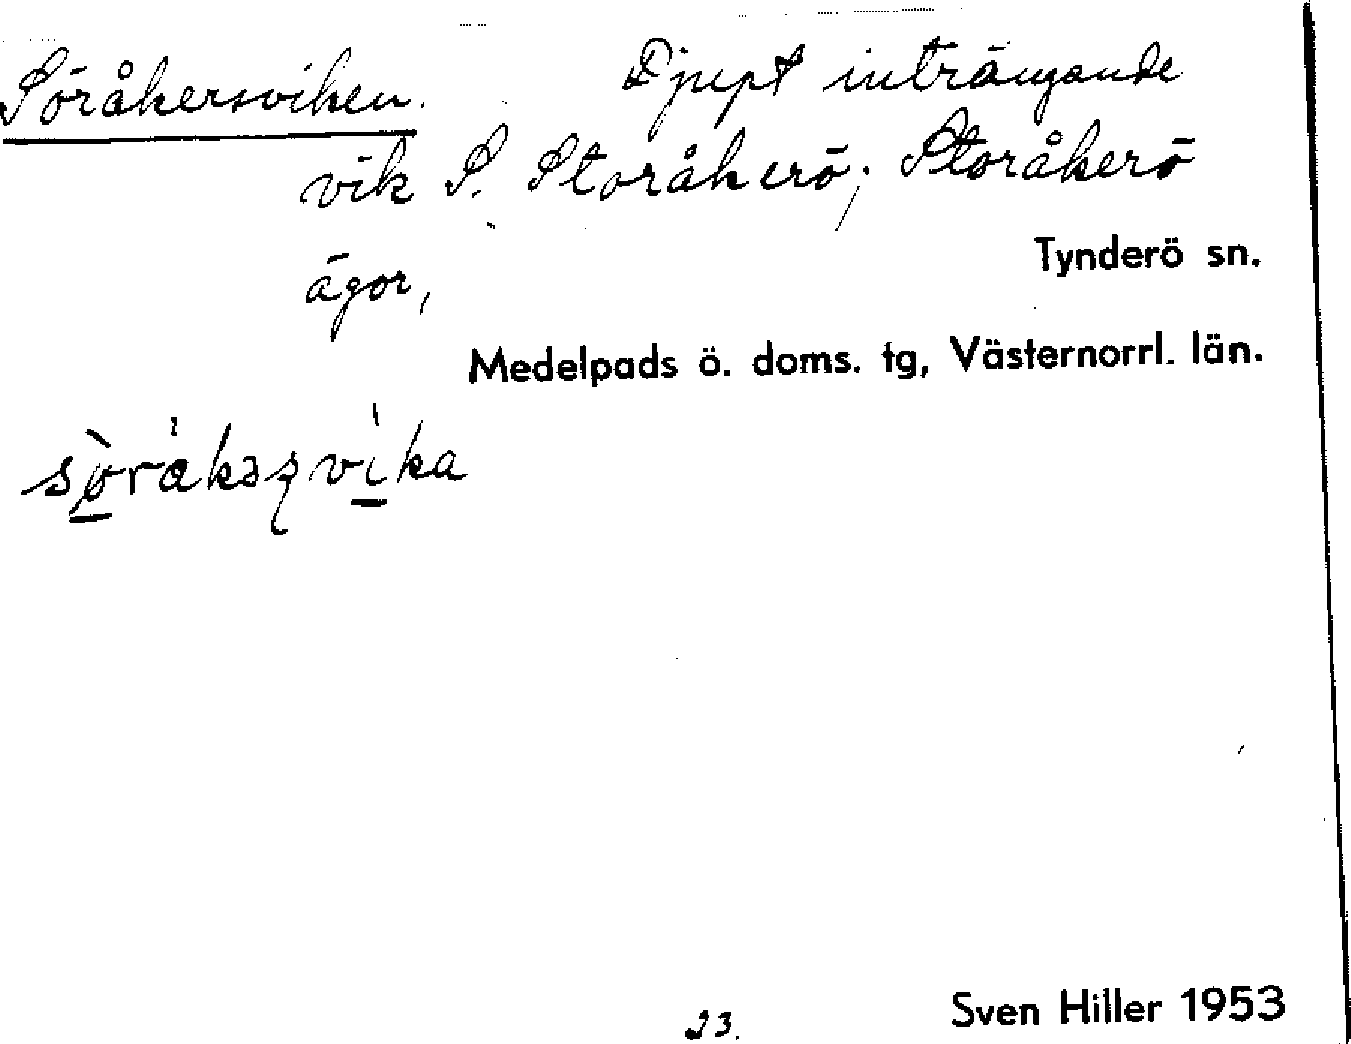 Söråkersviken. Djupt inträngande
vik S. Storåkerö; Storåkerö
ägor,
Tynderö sn.
Medelpads ö. doms. tg, Västernorrl. län.
Sven Hiller 1953
23.